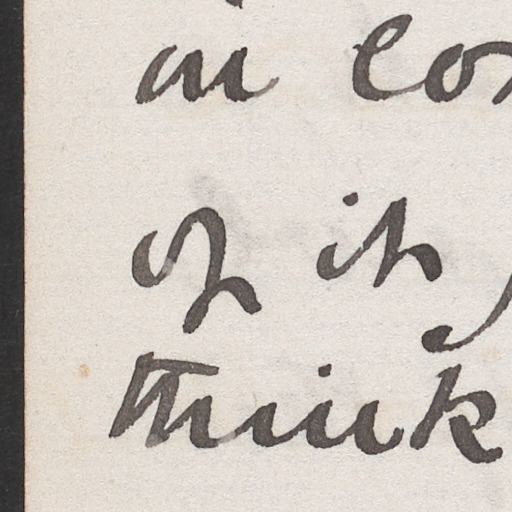 in con
of its
think